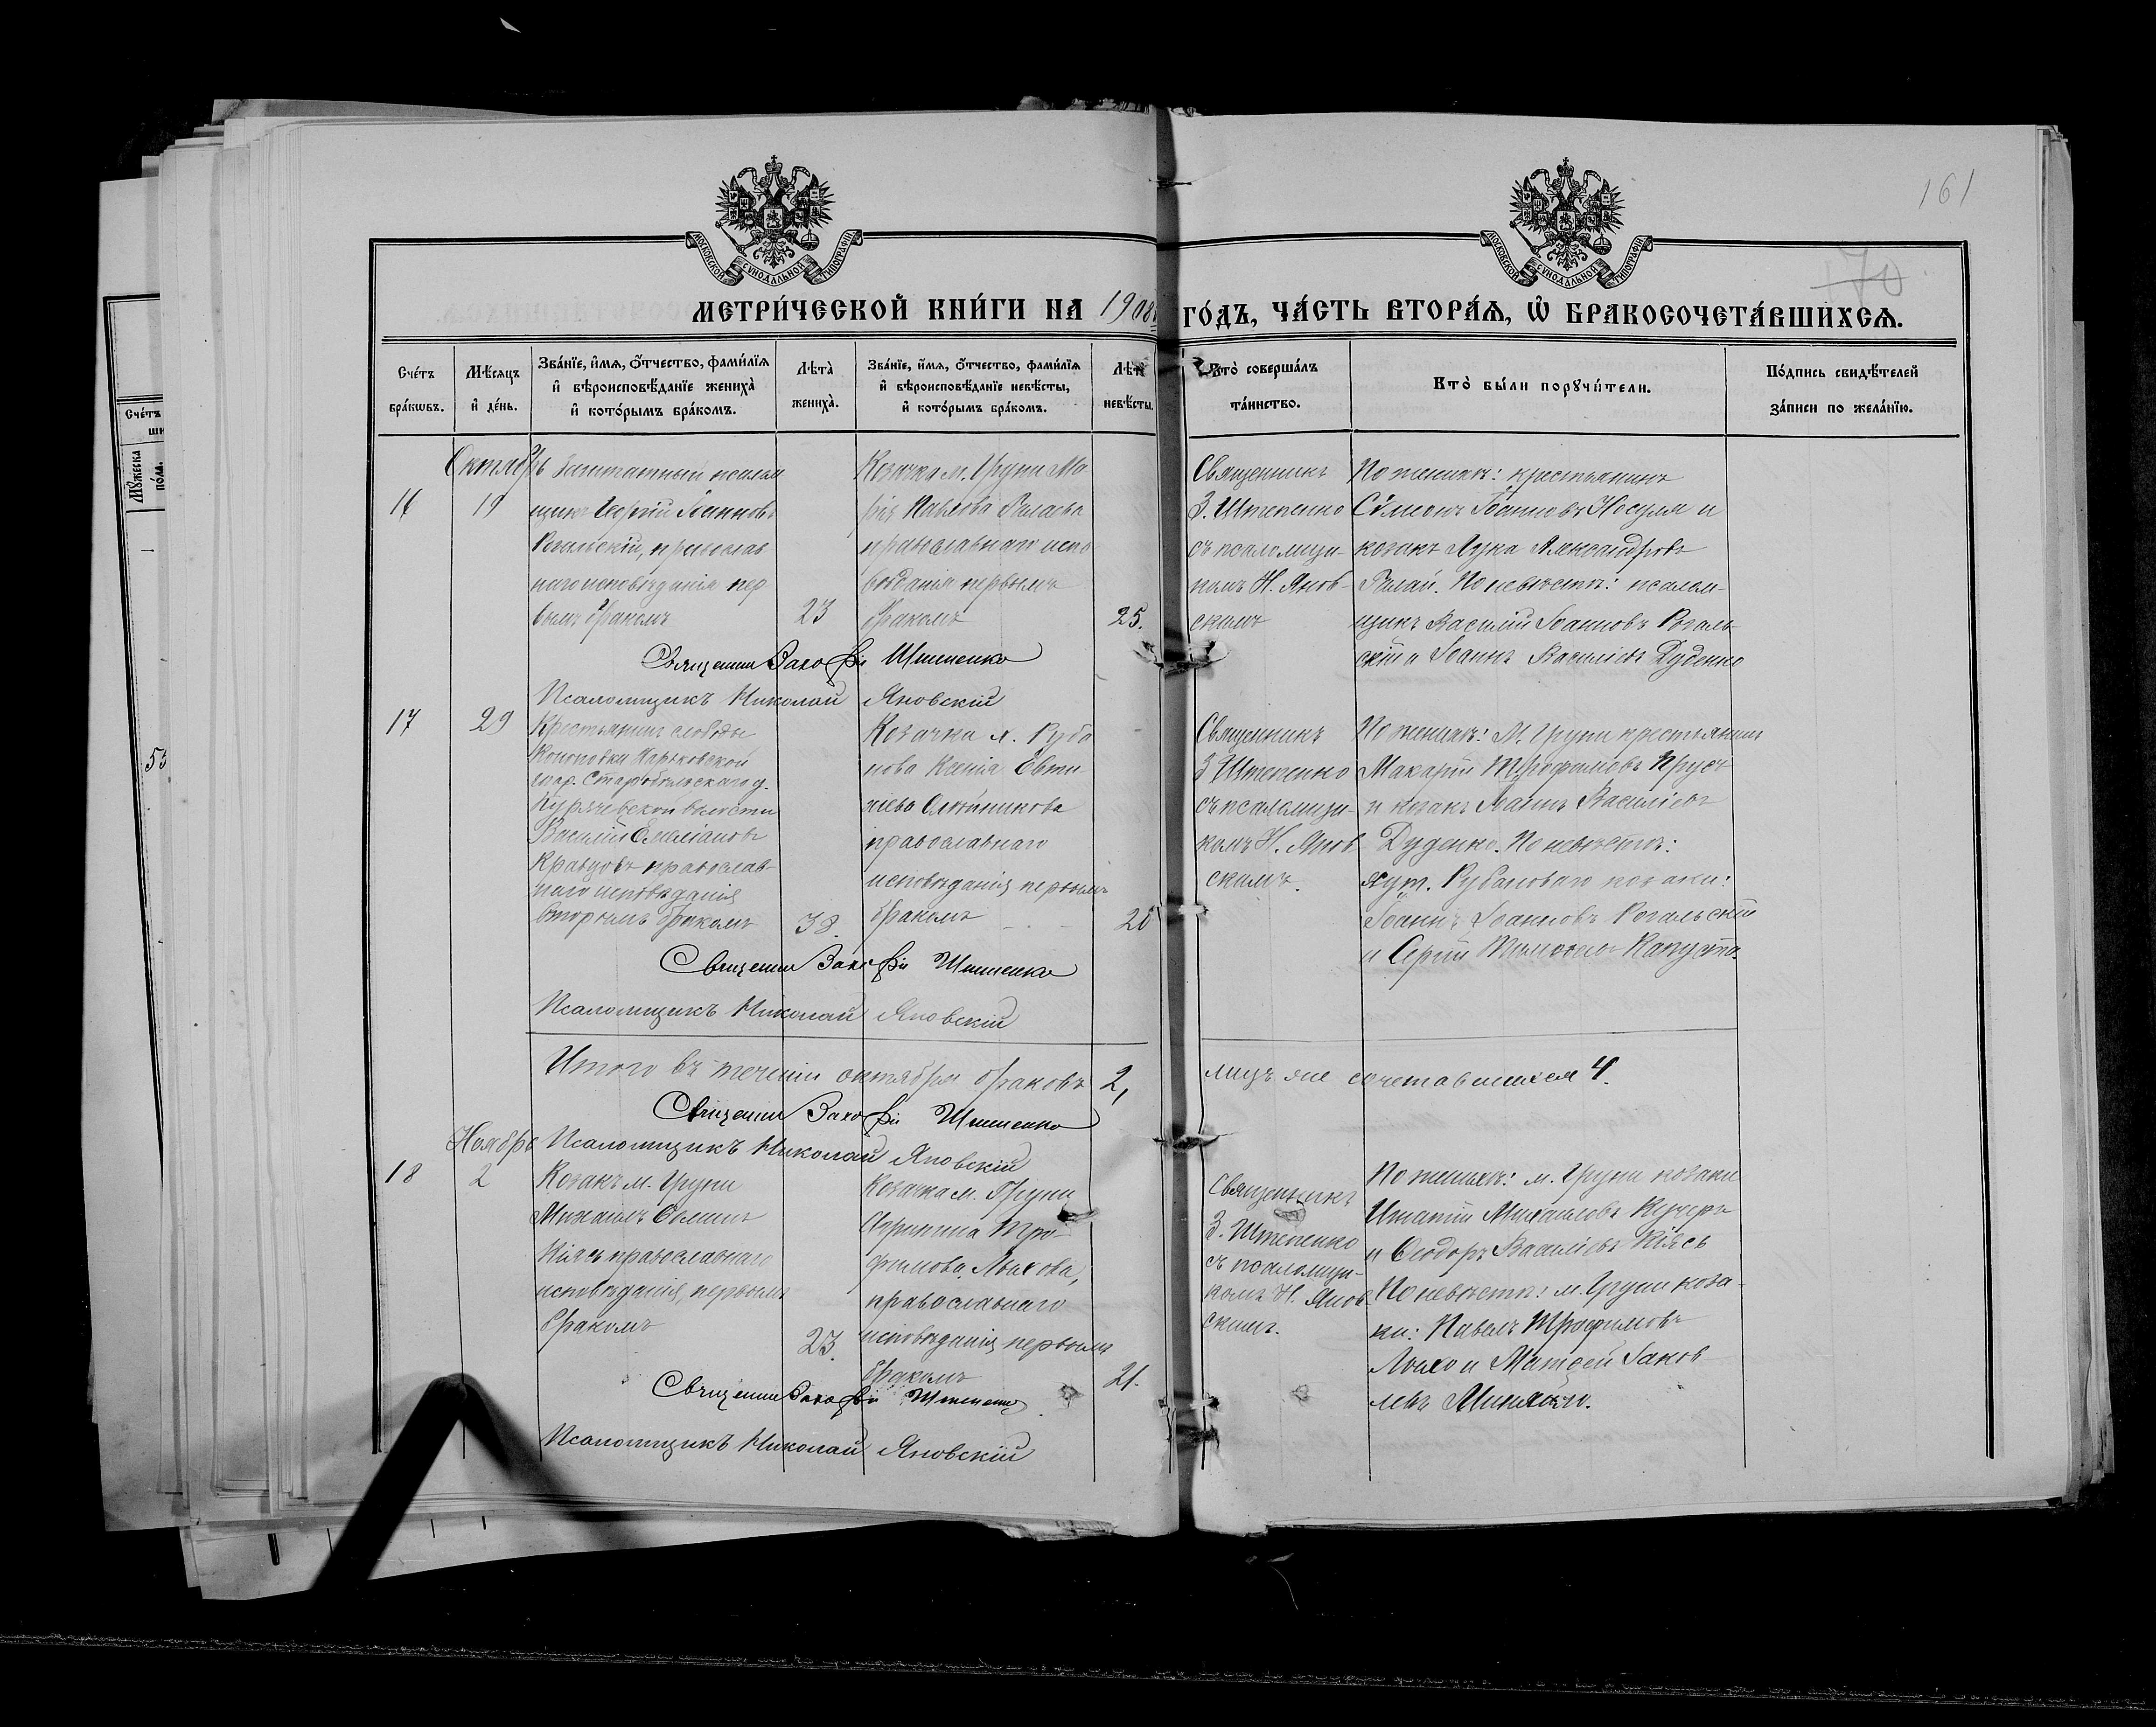 161
70
МОСКОВСКОЙ СѴНОДАЛЬНОЙ ТИПОГРАФІИ
МОСКОВСКОЙ СѴНОДАЛЬНОЙ ТИПОГРАФІИ
МЕТРИ́ЧЕСКОЙ КНИ́ГИ НА 1908 ГО́ДЪ, ЧА́СТЬ ВТОРА́Ѧ, Ѡ҆ БРАКОСОЧЕТА́ВШИХСѦ.
Сче́тъ бра́кѡвъ.
Мѣ́сѧцъ и҆ де́нь.
Зва́нїе, и҆́мѧ, ѻ҆́тчество, фами́лїѧ
и҆ вѣроисповѣ́данїе жениха̀
и҆ кото́рымъ бра́комъ.
Лѣта̀ жениха̀.
Зва́нїе, и҆́мѧ, ѻ҆́тчество, фами́лїѧ
и҆ вѣроисповѣ́данїе невѣ́сты,
и҆ кото́рымъ бра́комъ.
Лѣта̀ невѣ́сты.
Кто̀ соверша́лъ та́инство.
Кто̀ бы́ли порꙋчи́тели.
По́дпись свидѣ́телей
за́писи по жела́нїю.
Октябрь
16
19
Заштатный псалом
щикъ Георгій Іоанновъ
Рогальскій, православ
наго исповѣданія пер
вымъ бракомъ
23
Козачка м. Груни Ма
рія Павлова Галаева
православнаго испо
вѣданія первымъ
бракомъ
25.
Священникъ
З. Штепенко
съ псаломщи
комъ Н. Янов-
скимъ
По женихѣ: крестьянинъ
Сѵмеонъ Іоанновъ Носуля и
козакъ Лука Александровъ
Галай. По невѣстѣ: псалом-
щикъ Василій Іоанновъ Рогаль-
скій и Іоаннъ Василіевъ Дуденко
Священник Захарія Штепенко
Псаломщикъ Николай Яновскій
17
29
Крестьянинъ слободы
Харьковской
губ. Старобѣльскаго у.
волости
Василій Емеліановъ
Кравцовъ православ-
наго исповѣданія
вторымъ бракомъ
38.
Козачка х. Руба
нова Ксенія Евти
хіева Олейникова
православнаго
исповѣданія первымъ
бракомъ
20
Священникъ
З. Штепенко
съ псаломщи-
комъ Н. Янов
скимъ.
По женихѣ: М. Груни крестьянинъ
Макарій Трофимовъ Прусъ
и козакъ Іоаннъ Василіевъ
Дуденко. По невѣстѣ:
хут. Рубановаго козаки:
Іоаннъ Іоанновъ Рогальскій
и Сергій Капуста.
Священник Захарія Штепенко
Псаломщикъ Николай Яновскій
Итого въ теченіи октября браковъ 2, лицъ же сочетавшихся 4.
Священник Захарія Штепенко
Псаломщикъ Николай Яновскій
Ноябрь
18
2
Козакъ м. Груни
Михаилъ
Кіясъ православнаго
исповѣданія, первымъ
бракомъ
23.
Козачка м. Груни
Агрипина Тро-
фимова Ляхова,
православнаго
исповѣданія первымъ
бракомъ
21.
Священникъ
З. Штепенко
съ псаломщи-
комъ Н. Янов-
скимъ.
По женихѣ: м. Груни козаки
Игнатій Михаиловъ Кучеръ
и Ѳеодоръ Василіевъ Кіясъ
По невѣстѣ: м. Груни коза-
ки: Павелъ Трофимовъ
Ляхо и Матѳей Іаков
левъ
Священник Захарія Штепенко
Псаломщикъ Николай Яновскій
Счетъ
Мꙋжеска по́ла.
53